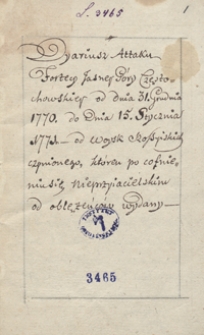 S. 3465
1
Dyariusz Attaku
Fortecy Jasney Góry Często-
chowskiey od dnia 31. Grudnia
1770. do Dnia 15. Stycznia
1771 — od woysk Rossyiskich
czynionego, ktoren po cofnie-
niu się nieprzyiacielskim
od oblężeńcow wydany —
3465